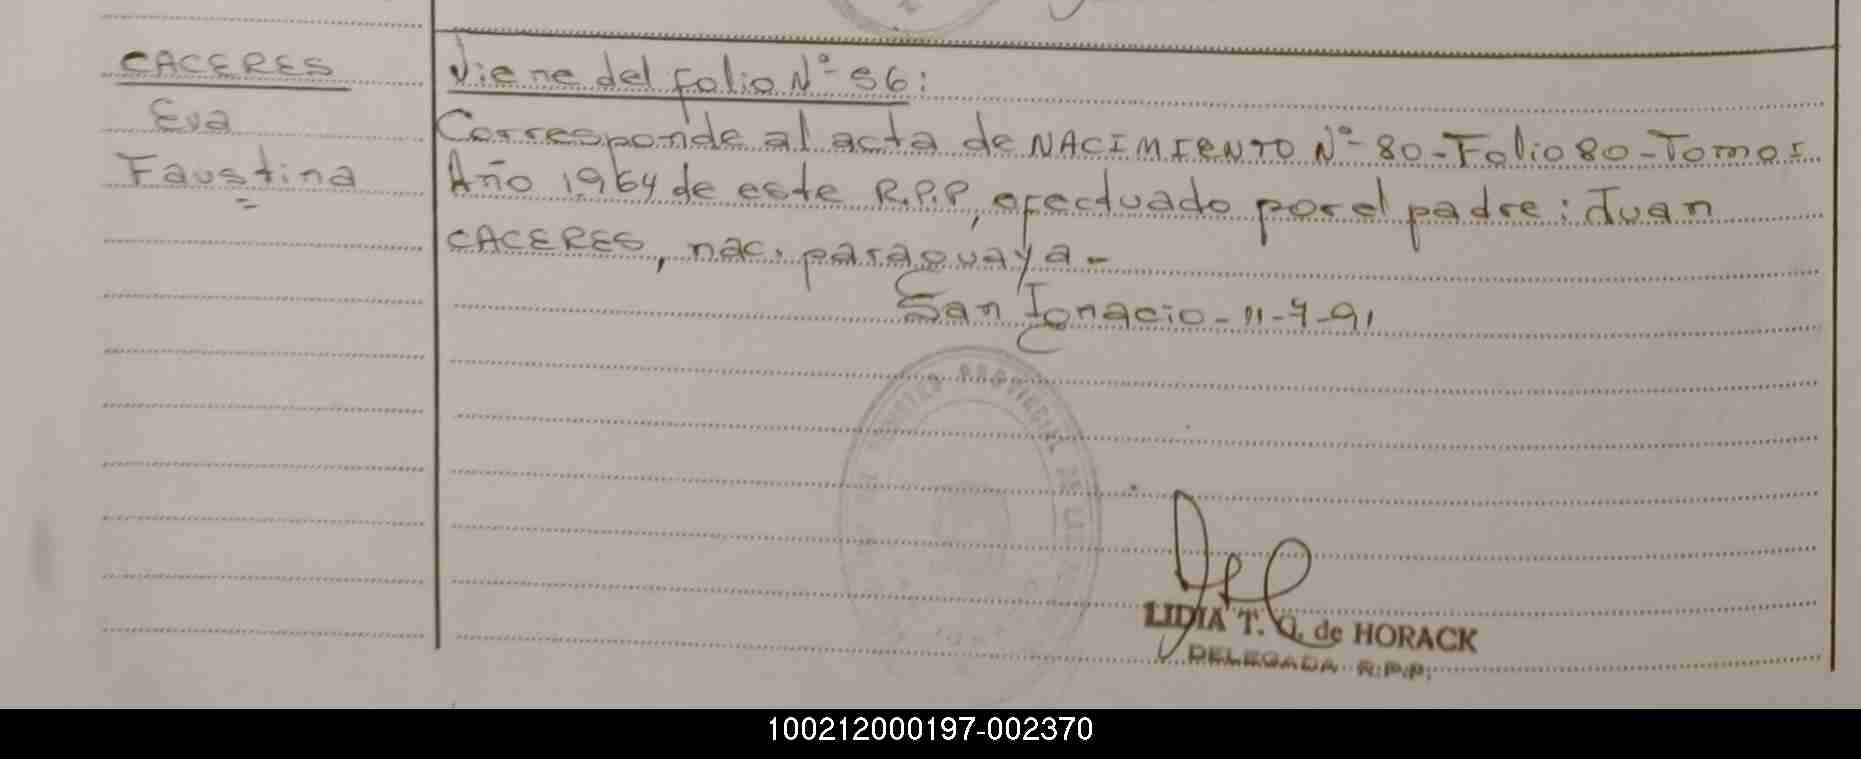 CACERES
Eva
Faustina
Viene del folio Nº 56:
Corresponde al acta de NACIMIENTO Nº 80-Folio 80-Tomo I
Año 1964 de este R.P.P, efectuado por el padre: Juan
CACERES, nac. paraguaya-
San Ignacio-11-7-91
REGISTRO PROVINCIAL DE
LIDIA T. G. de HORACK
DELEGADA R.P.P.
100212000197-002370